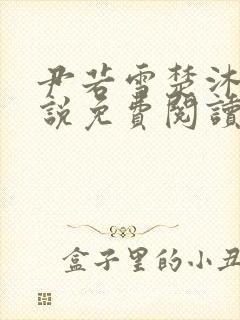 尹若雪楚沐
説免費閱讀
盒子里的小丑